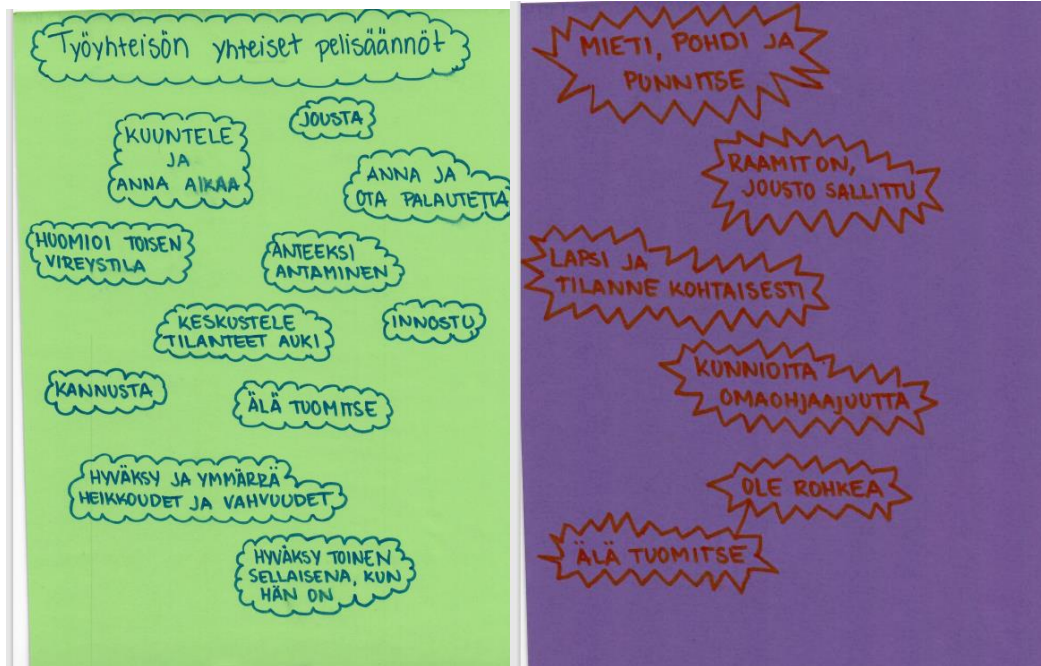 Työyhteisön yhteiset pelisäännöt
JOUSTA
KUUNTELE
JA
ANNA AIKAA
ANNA JA
OTA PALAUTETTA
HUOMIOI TOISEN
VIREYSTILA
ANTEEKSI
ANTAMINEN
KESKUSTELE
TILANTEET AUKI
INNOSTU
KANNUSTA
ÄLÄ TUOMITSE
HYVÄKSY JA YMMÄRRÄ
HEIKKOUDET JA VAHVUUDET
HYVÄKSY TOINEN
SELLAISENA, KUN
HÄN ON
MIETI, POHDI JA
PUNNITSE
RAAMIT ON,
JOUSTO SALLITTU
LAPSI JA
TILANNE KOHTAISESTI
KUNNIOITA
OMAOHJAAJUUTTA
OLE ROHKEA
ÄLÄ TUOMITSE